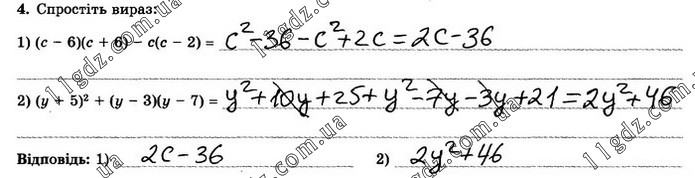 4. Спростіть вираз:
1) (c − 6)(c + 6) − c(c − 2) = c² − 36 − c² + 2c = 2c − 36
2) (y + 5)² + (y − 3)(y − 7) = y² + 10y + 25 + y² − 7y − 3y + 21 = 2y² + 46
Відповідь: 1) 2c − 36 2) 2y² + 46
11gdz.com.ua
11gdz.com.ua
11gdz.com.ua